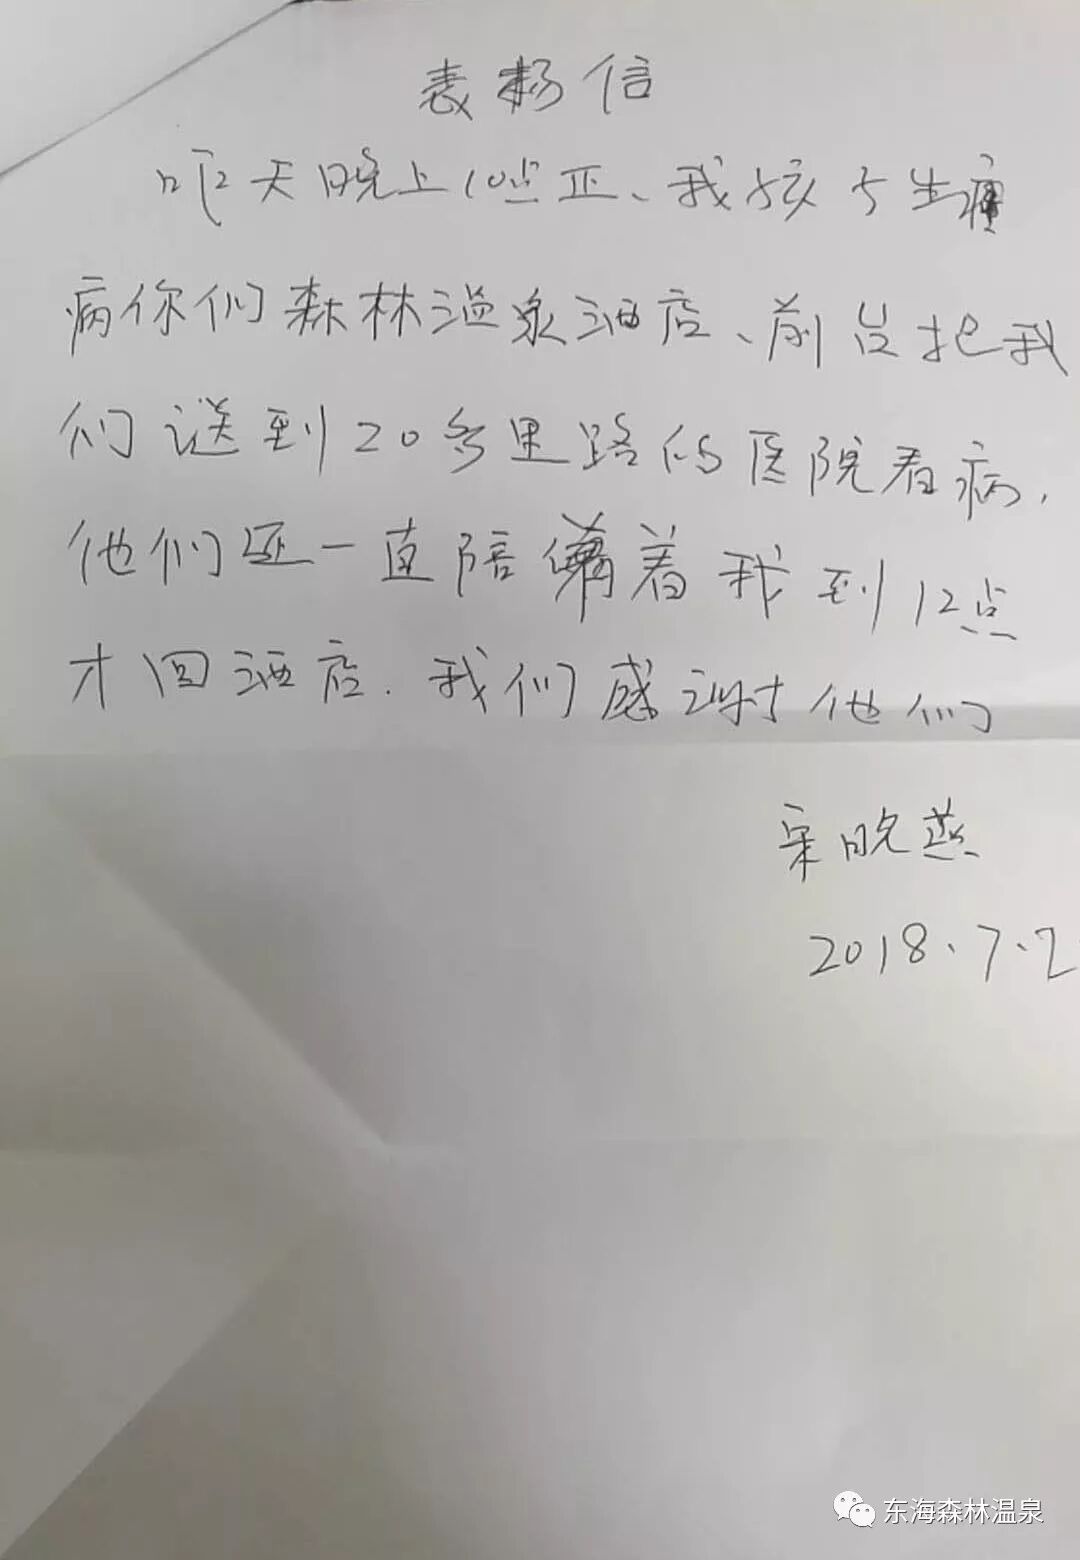 表扬信
昨天晚上10点正、我孩子生
病你们森林温泉酒店、前台把我
们送到20多里路的医院看病,
他们还一直陪着我到12点
才回酒店.我们感谢他们
宋晓燕
2018.7.2
东海森林温泉